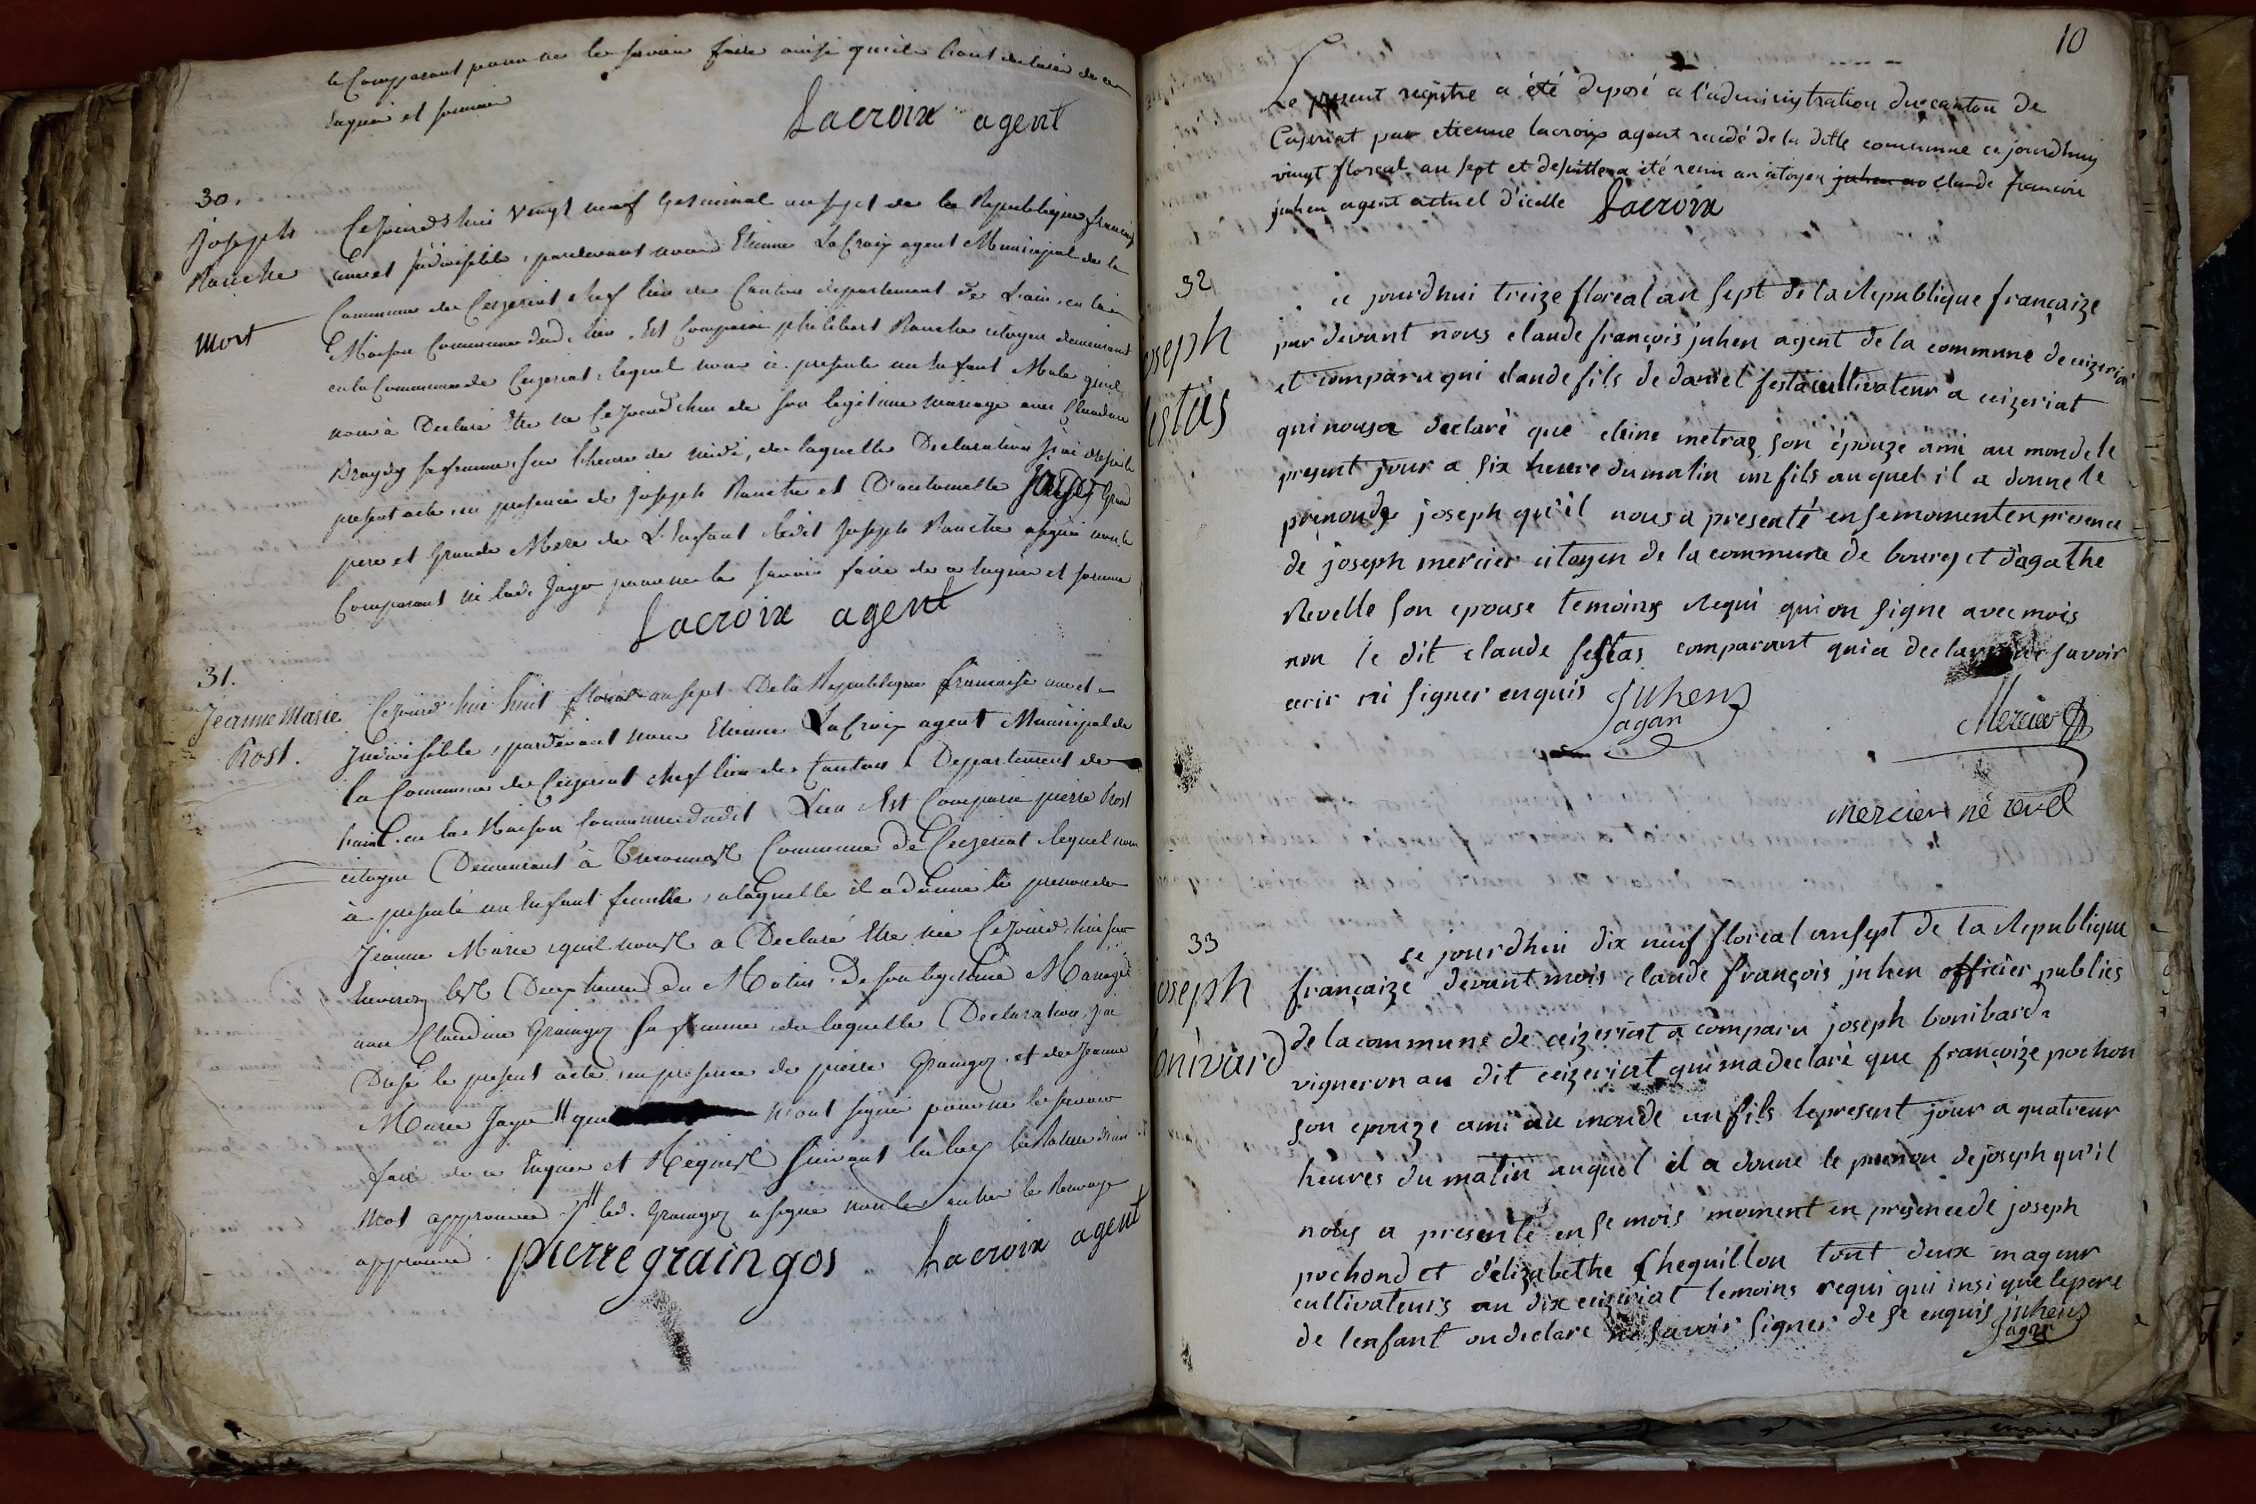 le Comparant pour ne le savoir faire ainsi quils l'ont declaré de ce
enquis et somme
Lacroix agent
30.
joseph
Rauche
mort
Cejourdhui vingt neuf Germinal an sept de la Republique francais
une et jndivisible, pardevant nous Etienne LaCroix agent Municipal de la
Commune de Ceyzeriat chef lieu de Canton departement de L'ain, en la
Maison Commune dud. lieu, Est Comparu philibert Rauche citoyen demeurant
en la Commune de Ceyzeriat, lequel nous à presenté un Enfant Male quil
nous à Declaré Etre né Cejourdhui de son legitime mariage avec Claudine
sa femme, sur l'heure de midi, de laquelle Declaration j'ai dressé le
present acte, en presence de Joseph Rauche et D'antoinette Jayr Grand
pere et Grande Mere de L'Enfant ledit Joseph Rauche a signé non le
Comparant ni lad. Jayr pour ne le savoir faire de ce enquis et somme
Lacroix agent
31.
Jeanne Marie
Rost.
Cejourd'hui huit floreal an sept De la Republique francaise une et
Jndivisible, pardevant nous Etienne LaCroix agent Municipal de
la Commune de Ceyzeriat chef lieu de Canton Departement de
Laint en la Maison Commune dudit Lieu Est Comparu pierre Rost
citoyen Demeurant à Commune de Ceyzeriat lequel nous
à presenté un Enfant femelle, alaquelle il a donné le prenom de
Jeanne Marie quil nous a Declaré Etre née Cejourd'hui sur
Environ les Deux heures du Matin De son legitime Mariage
avec Claudine Graingoz sa femme, de laquelle Declaration j'ai
Dressé le present acte en presence de pierre Graingoz et de Jeanne
Marie Jayr # que n'ont signé pour ne le savoir
faire de ce Enquis et Requis suivant la loy la Rature d'un
Mot approuvée. # led. Graingoz a signé non les autres le Renvoye
approuvé.
pierre graingos Lacroix agent
10
Le present registre a été deposé a l'administration du canton de
Ceyseriat par etienne lacroix agent de la ditte commune ce jourdhuy
vingt floreal an sept et desuitte a été remi au citoyen juhen claude francois
juhen agent actuel d'icelle Lacroix
32
joseph
festas
ce jourdhui treize floreal an sept de la Republique françaize
par devant nous claude françois juhen agent de la commune de ceizeriat
et comparu qui claude fils de daniel festa cultivateur a ceizeriat
qui nousa declaré que cleine metraz son épouze ami au monde le
present jour a six heure du matin un fils auquel il a donne le
prenonde joseph qu'il nous a presenté en semomentenpresence
de joseph mercier citoyen de la commune de bourg et dagathe
Revelle son epouse temoins Requi qui on signe avec mois
non le dit claude festas comparant quia declare ne savoir
ecrir ni signer enquis juhen
agan
Mercier
mercier né revel
33
joseph
bonivard
ce jourdhui dix neuf floreal ansept de la Republique
françaize devant mois claude françois juhen officier publics
de la commune de ceizeriat a comparu joseph bonibard
vigneron au dit ceizeriat qui madeclaré que françoize pochon
son epouze ami au monde un fils lepresent jour a quatreur
heures du matin auquel il a donne le prenon dejoseph qu'il
nous a presenté en se mois moment en presencede joseph
pochond et d'elizabethe chequillon tout deux mageur
cultivateurs au dix ceizeriat temoins requi qui insi que lepere
de lenfant ondeclare ne savoir signer de se enquis juhen
agan